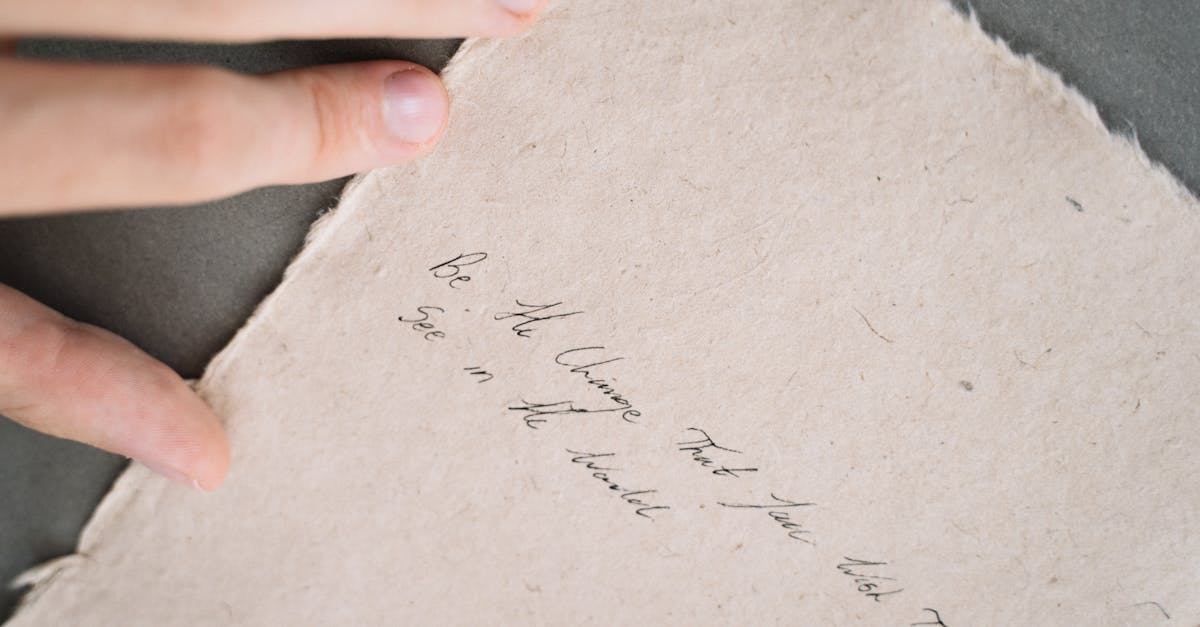 Be The Change That You Wish T
See in The World